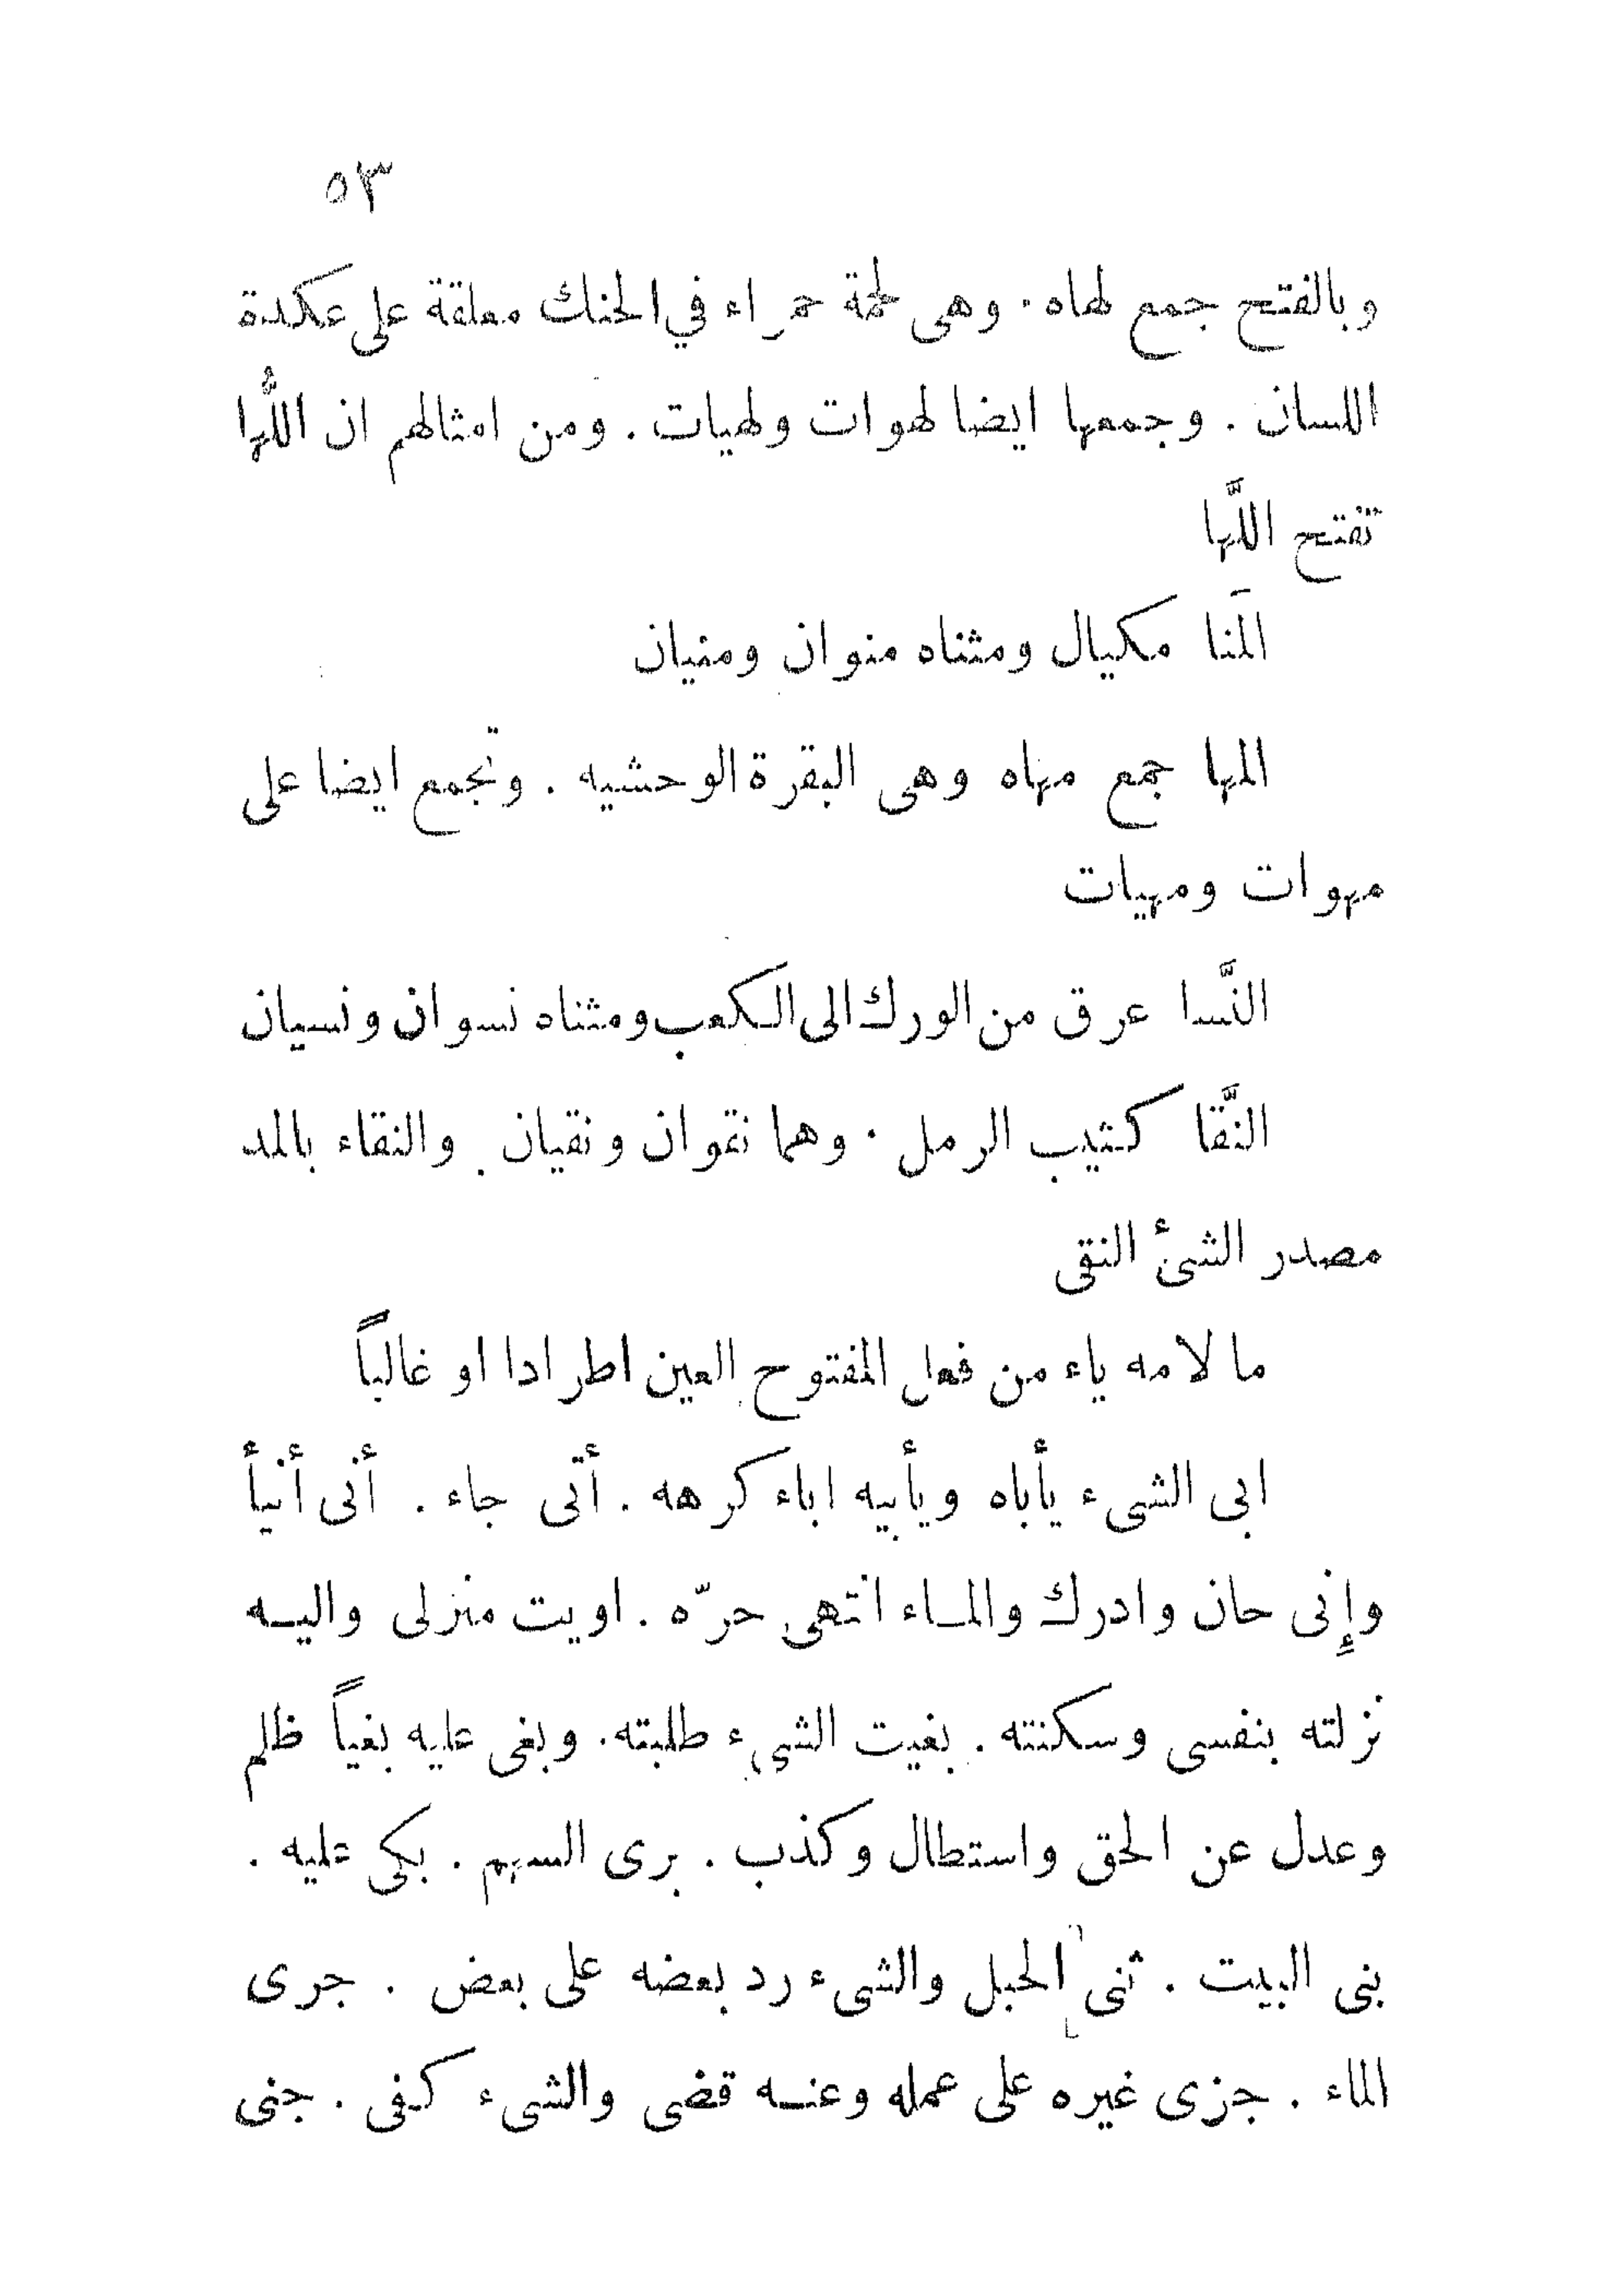 ٥٣
وبالفتح جمع لهاه . وهى لحمة حمراء في الحنك معلقة على عكدة
اللسان . وجمعها ايضا لهوات ولهيات . ومن امثالهم ان اللُّها
تفتح اللَّها
المَنا مكيال ومثناه منوان ومنيان
المها جمع مهاه وهى البقرة الوحشيه . وتجمع ايضا على
مهوات ومهيات
النَّسا عرق من الورك الى الكعب ومثناه نسوان ونسيان
النَّقا كثيب الرمل . وهما نقوان ونقيان . والنقاء بالمد
مصدر الشئ النقى
ما لامه ياء من فعل المفتوح العين اطرادا او غالباً
ابى الشىء يأباه ويأبيه اباء كرهه . أتى جاء . أنى أنيأ
وإنى حان وادرك والماء انتهى حرّه . اويت منزلى واليه
نزلته بنفسى وسكنته . بغيت الشىء طلبته . وبغى عليه بغياً ظلم
وعدل عن الحق واستطال وكذب . برى السهم . بكى عليه .
بنى البيت . ثنى الحبل والشىء رد بعضه على بعض . جرى
الماء . جزى غيره على عمله وعنه قضى والشىء كفى . جنى